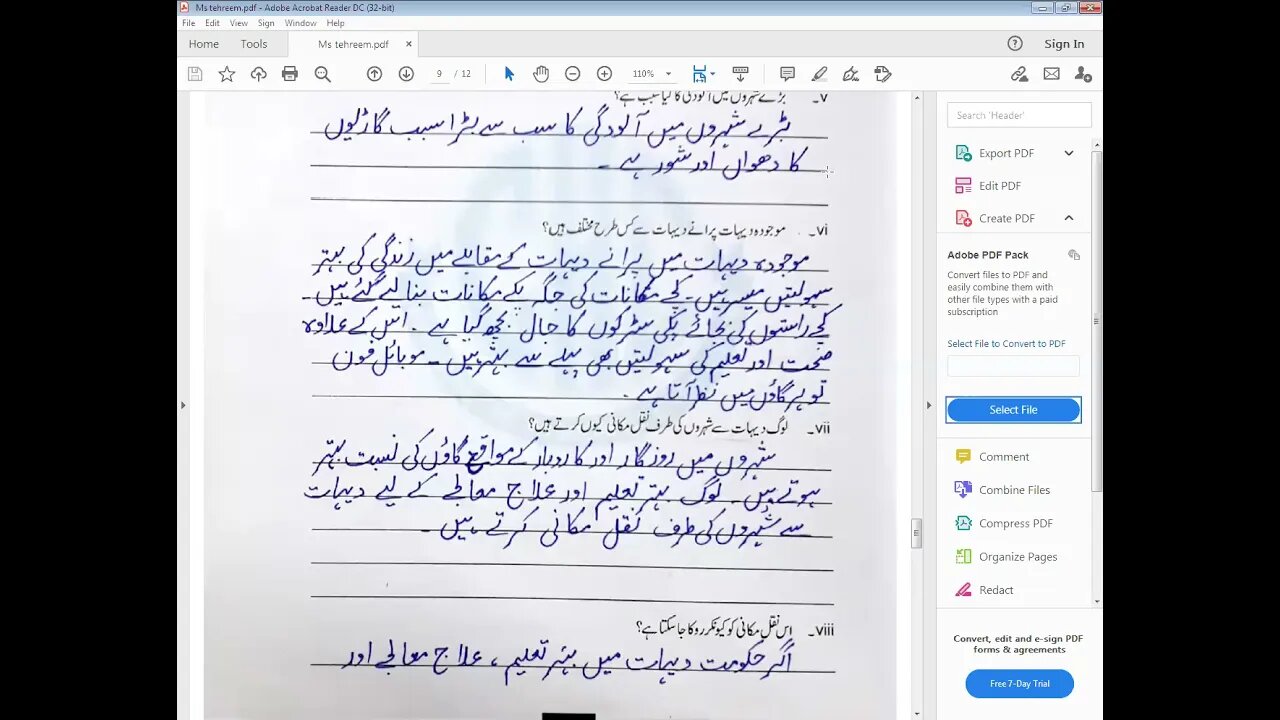 Ms tehreem.pdf - Adobe Acrobat Reader DC (32-bit)
File Edit View Sign Window Help
Home Tools Ms tehreem.pdf × Sign In
9 / 12 110%
v۔ بڑے شہروں میں آلودگی کا کیا سبب ہے؟
بڑے شہروں میں آلودگی کا سب سے بڑا سبب گاڑیوں
کا دھواں اور شور ہے ۔
vi۔ موجودہ دیہات پرانے دیہات سے کس طرح مختلف ہیں؟
موجودہ دیہات میں پرانے دیہات کے مقابلے میں زندگی کی بہتر
سہولتیں میسر ہیں۔ کچے مکانات کی جگہ پکے مکانات بنا لیے گئے ہیں۔
کچے راستوں کی بجائے پکی سڑکوں کا جال بچھ گیا ہے ۔ اس کے علاوہ
صحت اور تعلیم کی سہولتیں بھی پہلے سے بہتر ہیں ۔ موبائل فون
تو ہر گاؤں میں نظر آتا ہے ۔
vii۔ لوگ دیہات سے شہروں کی طرف نقل مکانی کیوں کرتے ہیں؟
شہروں میں روزگار اور کاروبار کے مواقع گاؤں کی نسبت بہتر
ہوتے ہیں۔ لوگ بہتر تعلیم اور علاج معالجے کے لیے دیہات
سے شہروں کی طرف نقل مکانی کرتے ہیں ۔
viii۔ اس نقل مکانی کو کیونکر روکا جا سکتا ہے؟
اگر حکومت دیہات میں بہتر تعلیم ، علاج معالجے اور
Search 'Header'
Export PDF
Edit PDF
Create PDF
Adobe PDF Pack
Convert files to PDF and
easily combine them with
other file types with a paid
subscription
Select File to Convert to PDF
Select File
Comment
Combine Files
Compress PDF
Organize Pages
Redact
Convert, edit and e-sign PDF
forms & agreements
Free 7-Day Trial